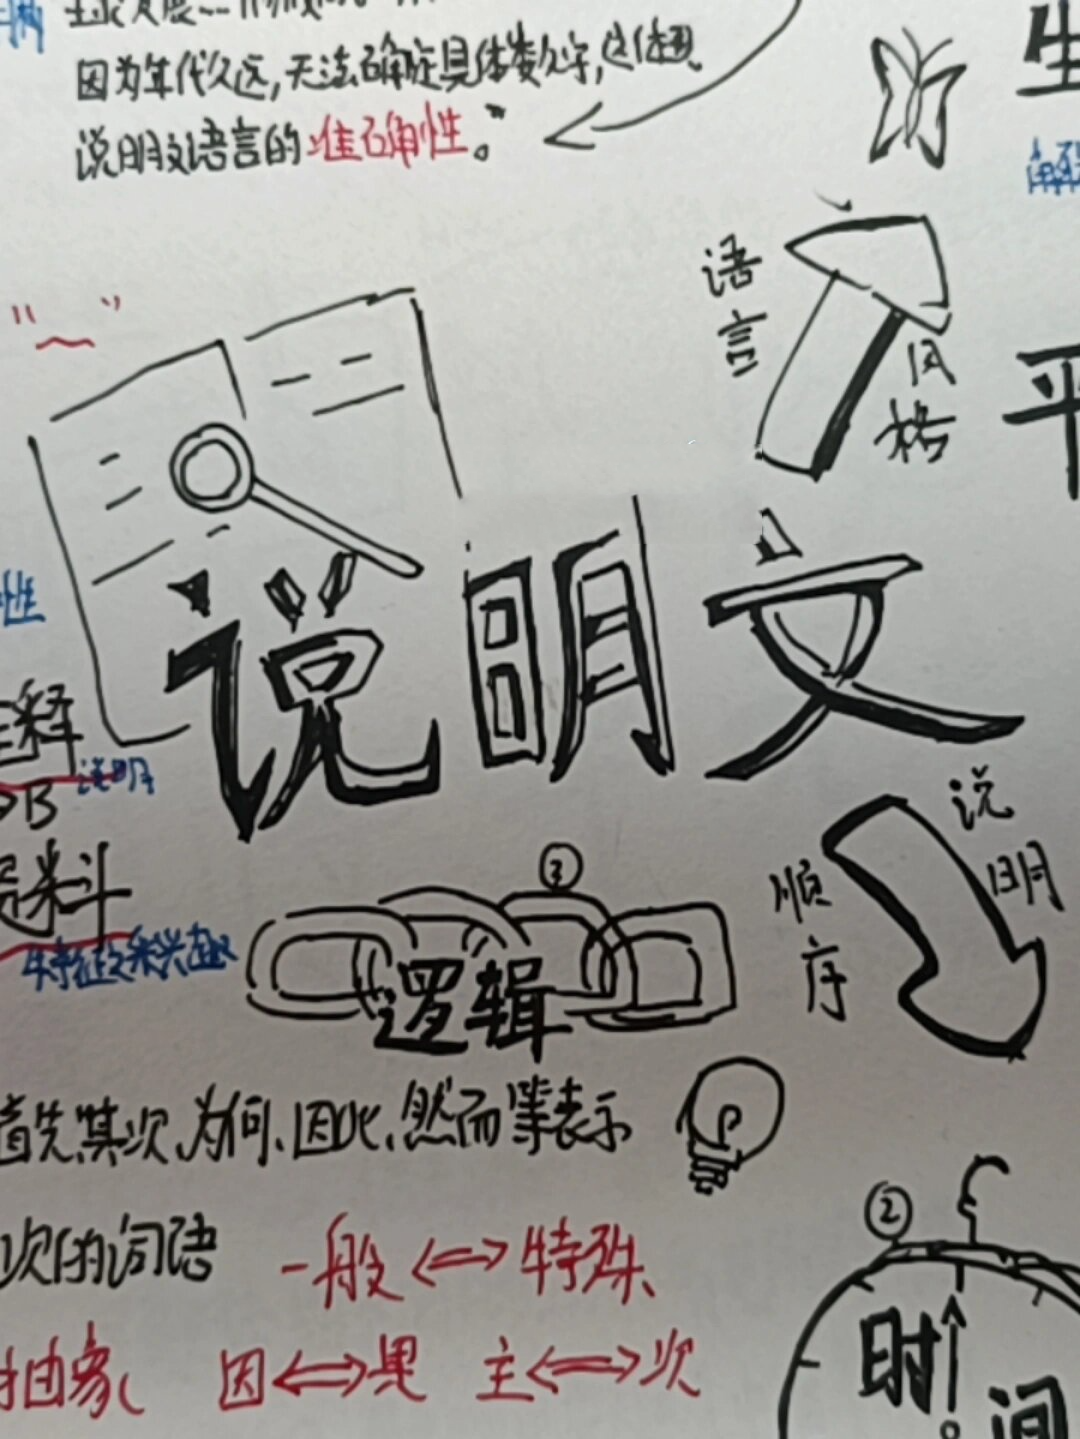 因为年代久远,天法确定具体数字,这体现
说明文语言的准确性。"
生
语言
风格
平
" "
性
释
说明文
说明
B
料
特征之余兴趣
说明
顺序
③
逻辑
首先其次、为何、因此、然而等表示
次的词语
一般<=>特殊、
抽象 因<=>果 主<=>次
②
时间